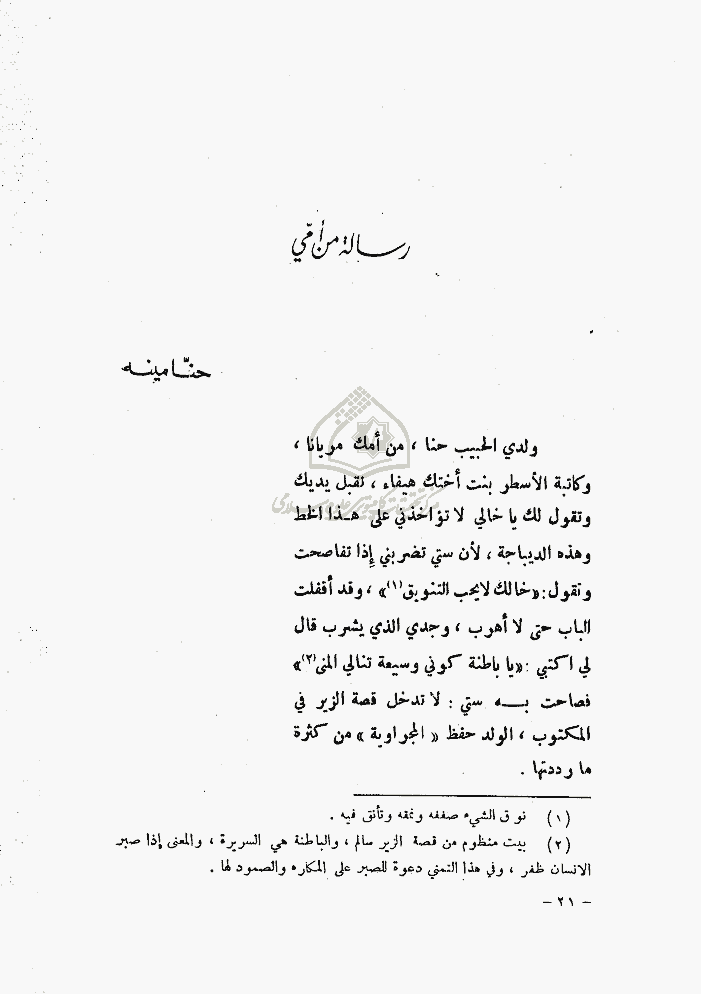 رسالة من أمّي
حنّا مينه
ولدي الحبيب حنا ، من أمك مريانا ،
وكاتبة الأسطر بنت أختك هيفاء ، نقبل يديك
وتقول لك يا خالي لا تؤاخذني على هذا الخط
وهذه الديباجة ، لأن ستي تضربني إذا تفاصحت
وتقول : «خالك لا يحب التنويق(١)» ، وقد أقفلت
الباب حتى لا أهرب ، وجدي الذي يشرب قال
لي اكتبي : «يا باطنة كوني وسيعة تنالي المنى(٢)»
فصاحت به ستي : لا تدخل قصة الزير في
المكتوب ، الولد حفظ « المجراوية » من كثرة
ما رددتها .
(١) نوق الشيء صففه ونمقه وتأنق فيه .
(٢) بيت منظوم من قصة الزير سالم ، والباطنة هي السريرة ، والمعنى إذا صبر
الانسان ظفر ، وفي هذا التمني دعوة للصبر على المكاره والصمود لها .
– ٢١ –